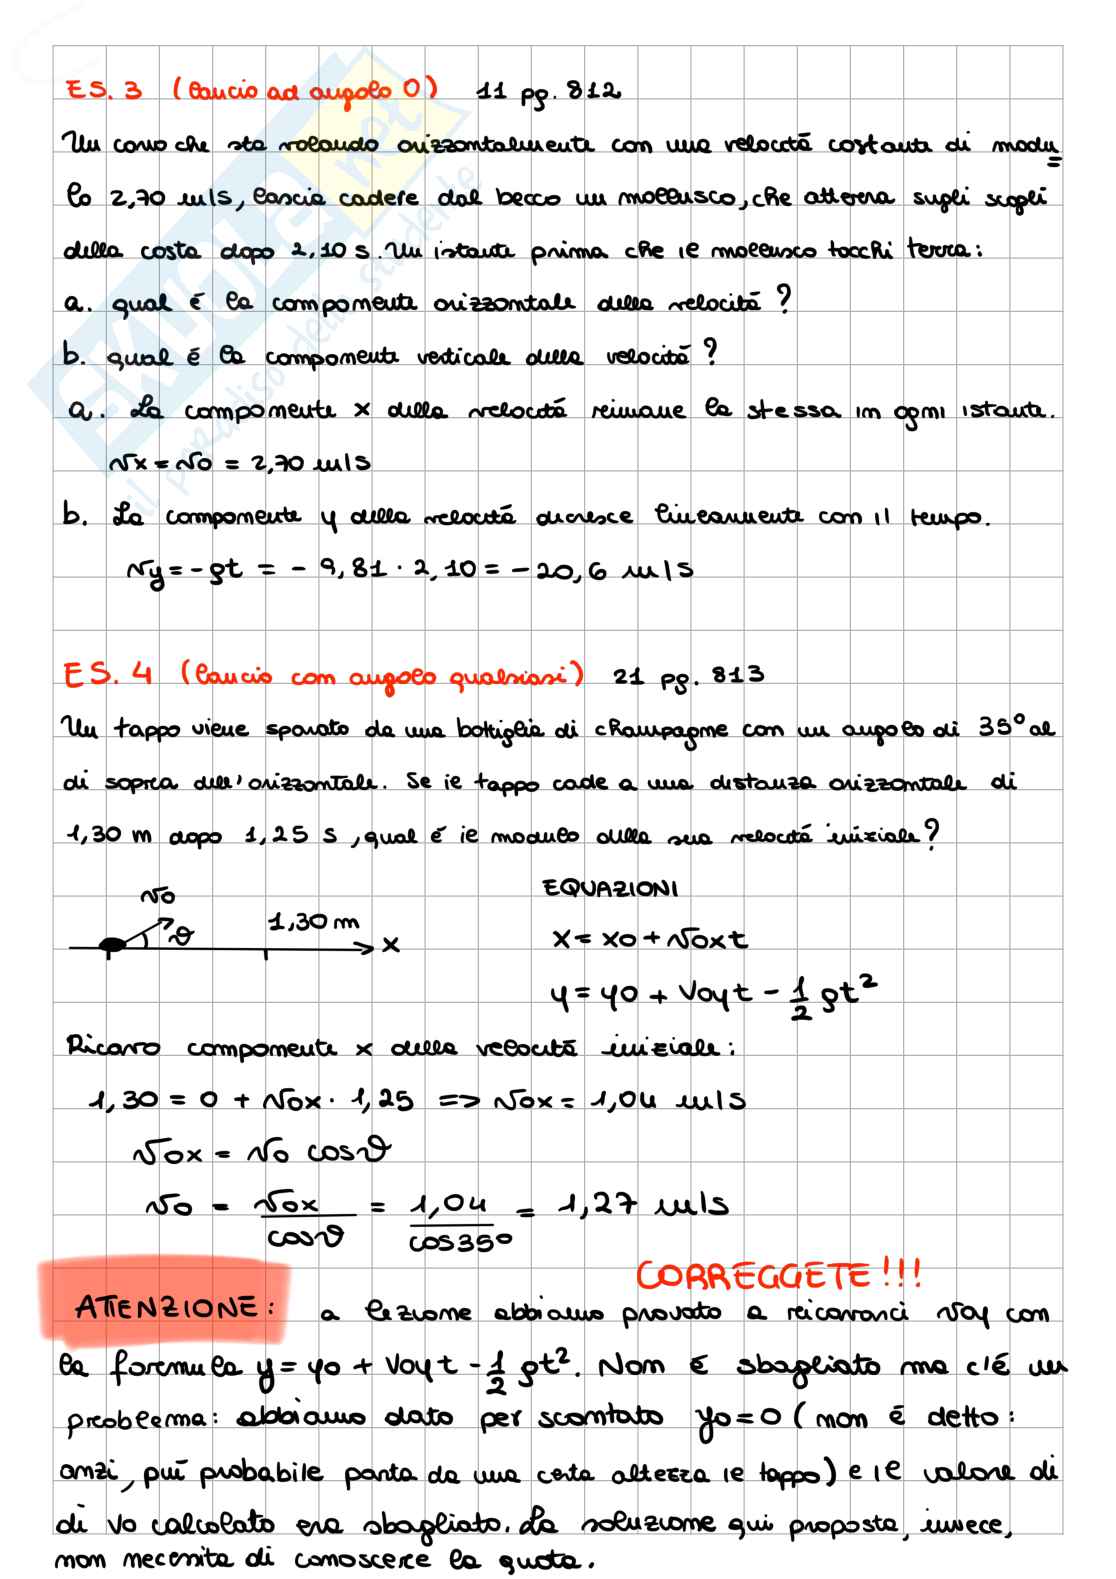 ES. 3 (lancio ad angolo 0) 11 pg. 812
Un corvo che sta volando orizzontalmente con una velocità costante di modu
lo 2,70 m/s, lascia cadere dal becco un mollusco, che atterra sugli scogli
della costa dopo 2,10 s. Un istante prima che il mollusco tocchi terra:
a. qual è la componente orizzontale della velocità?
b. qual è la componente verticale della velocità?
a. La componente x della velocità rimane la stessa in ogni istante.
vx = v0 = 2,70 m/s
b. La componente y della velocità decresce linearmente con il tempo.
vy = - gt = - 9,81 · 2,10 = - 20,6 m/s
ES. 4 (lancio con angolo qualsiasi) 21 pg. 813
Un tappo viene sparato da una bottiglia di champagne con un angolo di 35° al
di sopra dell'orizzontale. Se il tappo cade a una distanza orizzontale di
1,30 m dopo 1,25 s, qual è il modulo della sua velocità iniziale?
EQUAZIONI
v0
ϑ
1,30 m
x
x = x0 + v0xt
y = y0 + v0yt - 1/2 gt²
Ricavo componente x della velocità iniziale:
1,30 = 0 + v0x · 1,25 => v0x = 1,04 m/s
v0x = v0 cosϑ
v0 = v0x/cosϑ = 1,04/cos35° = 1,27 m/s
CORREGGETE!!!
ATTENZIONE: a lezione abbiamo provato a ricavarci v0y con
la formula y = y0 + v0yt - 1/2 gt². Non è sbagliato ma c'è un
problema: abbiamo dato per scontato y0 = 0 (non è detto:
anzi, più probabile parta da una certa altezza il tappo) e il valore di
di v0 calcolato era sbagliato. La soluzione qui proposta, invece,
non necessita di conoscere la quota.
SKUOLA.net
il paradiso dello studente